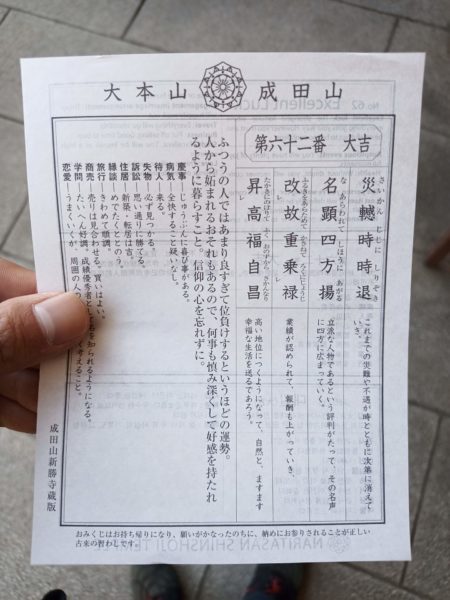 大本山 成田山
第六十二番 大吉
さいかん じじに しりぞき
災轗時時退
これまでの災難や不遇が時とともに次第に消えて
いき、
な あらわれて しほうに あがる
名顕四方揚
立派な人物であるという評判がたって、その名声
に四方に広まっていく。
改故重乗禄
業績が認められて、報酬も上がっていき、
昇高福自昌
高い地位につくようになって、自然と、ますます
幸福な生活を送るであろう。
ふつうの人ではあまり良すぎて位負けするというほどの運勢。
人から妬まれるおそれもあるので、何事も慎み深くして好感を持たれ
るように暮らすこと。信仰の心を忘れずに。
慶事―じゅうぶんに喜び事がある。
病気―全快すること疑いなし。
待人―来る。
失物―必ず見つかる。
訴訟―思い通りに勝てる。
住居―新築・転居は吉。
縁談―めでたくととのう。
旅行―きわめて順調。
商売―売りは見合わせる。買いはよい。
学問―たいへん好調。成績優秀者として
も知られるようになる。
恋愛―うまくいくが、周囲の人の
く考えること。
成田山新勝寺蔵版
おみくじはお持ち帰りになり、願いがかなったのちに、納めにお参りされることが正しい
古来の習わしです。
No. 62
Excellent Luck
NARITASAN SHINSHOJI TEMPLE